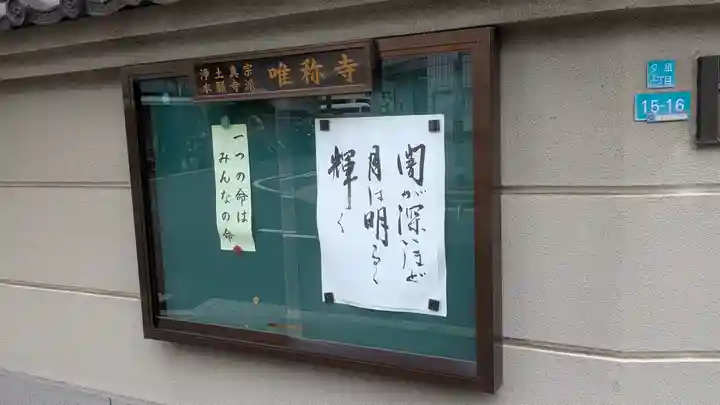 浄土真宗
本願寺派
唯称寺
闇が深いほど
月は明るく
輝く
一つの命は
みんなの命
夕凪
二丁目
15-16